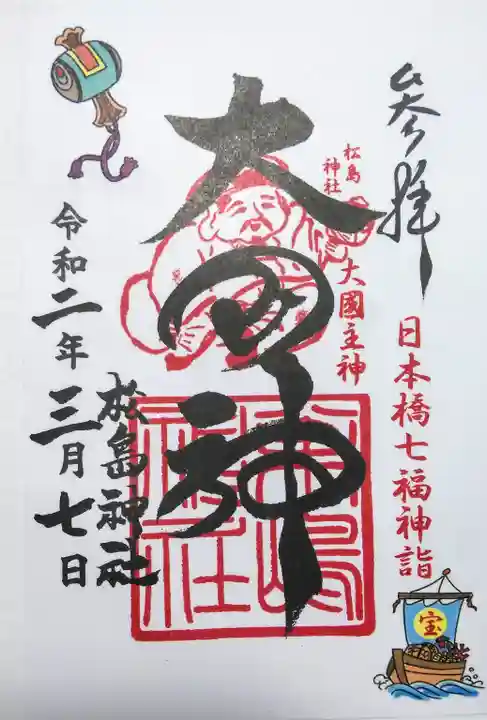 参拝
日本橋七福神詣
松島
神社
大國主神
大四神
松島神社
令和二年三月七日
宝